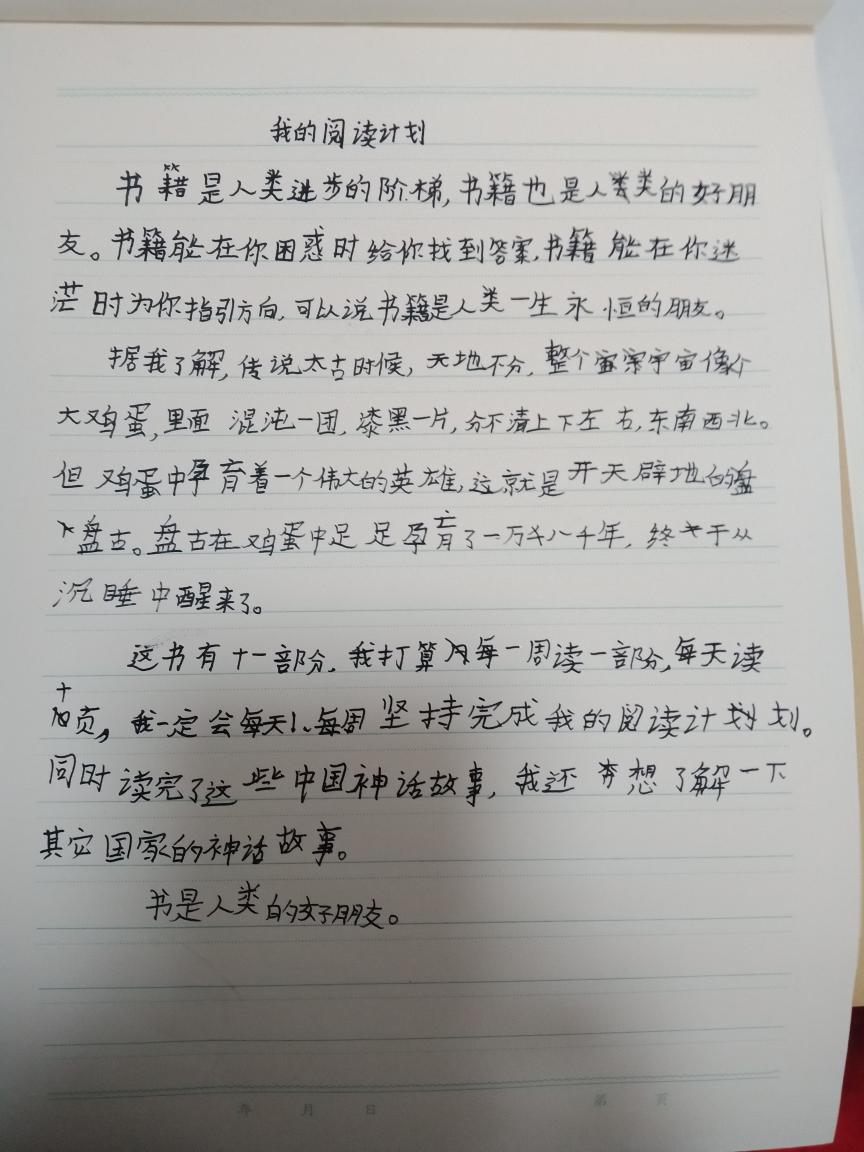 我的阅读计划
书籍是人类进步的阶梯,书籍也是人类类的好朋
友。书籍能在你困惑时给你找到答案,书籍能在你迷
茫时为你指引方向,可以说书籍是人类一生永恒的朋友。
据我了解,传说太古时候,天地不分,整个宇宙像个
大鸡蛋,里面混沌一团,漆黑一片,分不清上下左右,东南西北。
但鸡蛋中孕育着一个伟大的英雄,这就是开天辟地的
盘古。盘古在鸡蛋中足足孕育了一万八千年,终于从
沉睡中醒来了。
这书有十一部分,我打算每一周读一部分,每天读
十页,我一定会每天、每周坚持完成我的阅读计划。
同时读完了这些中国神话故事,我还想了解一下
其它国家的神话故事。
书是人类的好朋友。
年 月 日 第 页